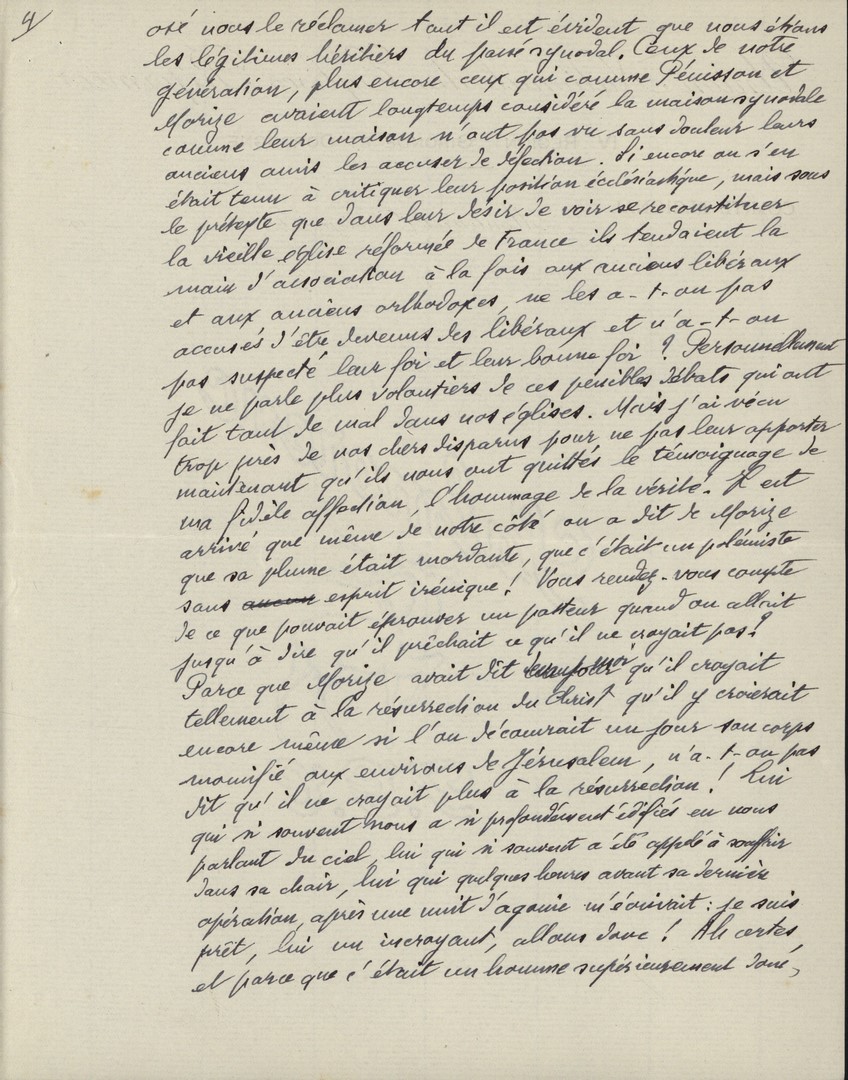 4/
osé nous le réclamer tant il est évident que nous étions
les légitimes héritiers du passé synodal. Ceux de notre
génération, plus encore ceux qui comme Pénisson et
Morize avaient longtemps considéré la maison synodale
comme leur maison n'ont pas vu sans douleur leurs
anciens amis les accuser de défection. Si encore on s'en
était tenu à critiquer leur position ecclésiastique, mais sous
le prétexte que dans leur désir de voir se reconstituer
la vieille église réformée de France ils tendaient la
main d'association à la fois aux anciens libéraux
et aux anciens orthodoxes, ne les a-t-on pas
accusés d'être devenus des libéraux et n'a-t-on
pas suspecté leur foi et leur bonne foi ? Personnellement
je ne parle plus volontiers de ces pénibles débats qui ont
fait tant de mal dans nos églises. Mais j'ai vécu
trop près de nos chers disparus pour ne pas leur apporter
maintenant qu'ils nous ont quittés le témoignage de
ma fidèle affection, l'hommage de la vérité. Il est
arrivé que même de notre côté on a dit de Morize
que sa plume était mordante, que c'était un polémiste
sans aucun esprit irénique ! Vous rendez-vous compte
de ce que pouvait éprouver un pasteur quand on allait
jusqu'à dire qu'il prêchait ce qu'il ne croyait pas ?
Parce que Morize avait dit qu'il croyait
tellement à la résurrection du Christ qu'il y croierait
encore même si l'on découvrait un jour son corps
momifié aux environs de Jérusalem, n'a-t-on pas
dit qu'il ne croyait plus à la résurrection ! Lui
qui si souvent nous a si profondément édifiés en nous
parlant du ciel, lui qui si souvent a été appelé à souffrir
dans sa chair, lui qui quelques heures avant sa dernière
opération, après une nuit d'agonie m'écrivait : je suis
prêt, lui un incroyant, allons donc ! Ah certes,
et parce que c'était un homme supérieurement doué,